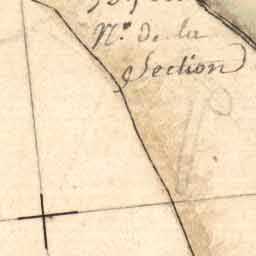 N.º de la
Section